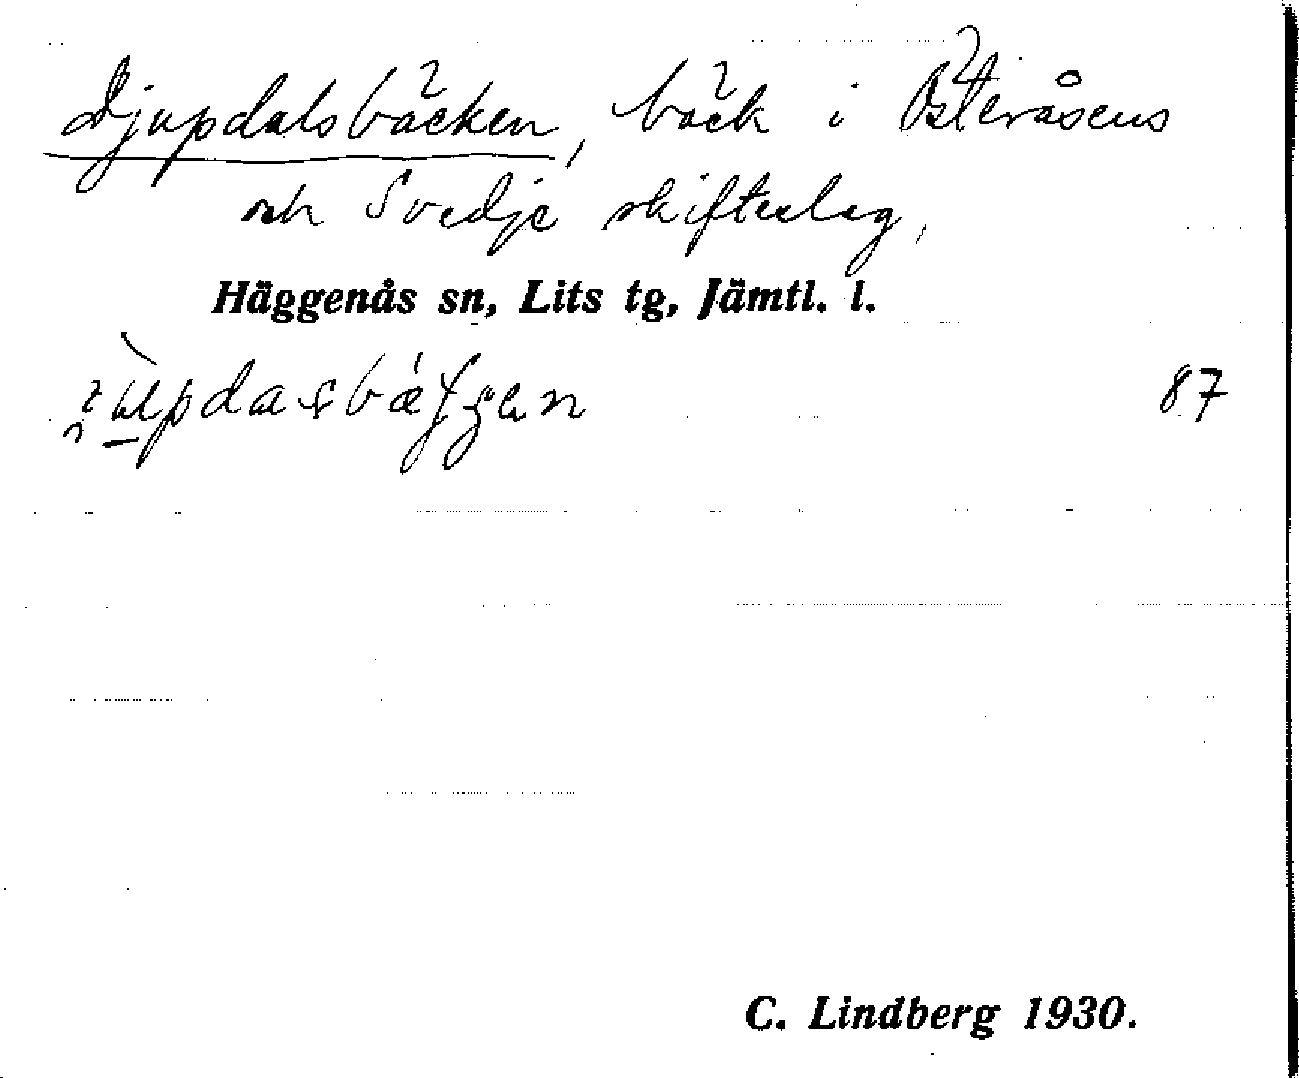 Djupdalsbäcken, bäck i Österåsens
och Svedje skifteslag,
Häggenås sn, Lits tg, Jämtl. l.
87
C. Lindberg 1930.